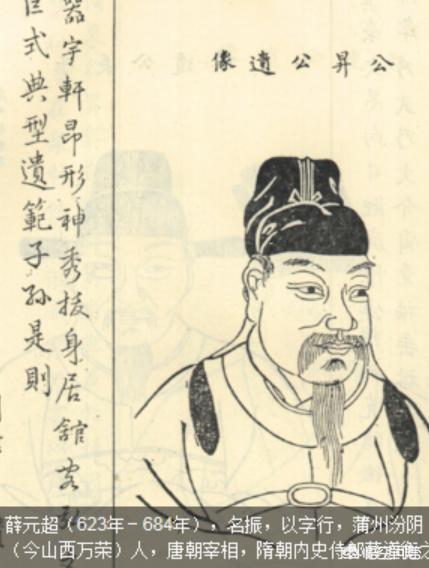 公昇公遺像
器宇軒昂形神秀拔身居舘
式典型遺範子孫是則
薛元超（623年－684年），名振，以字行，蒲州汾阴
（今山西万荣）人，唐朝宰相，隋朝内史侍郎薛道衡之